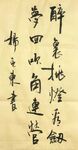 醉裏挑燈看劍
夢回吹角連營
楊之東書